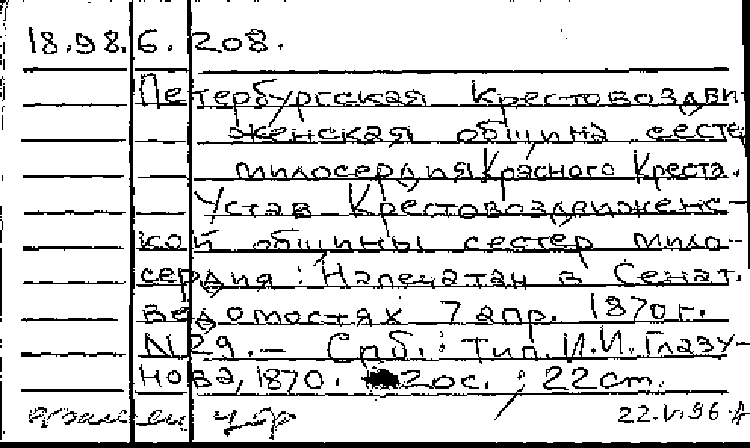 18.98.6.208.
Петербургская Крестовоздви-
женская община сестер
милосердия Красного Креста.
Устав Крестовоздвиженс-
кой общины сестер мило-
сердия : Напечатан в Сенат.
ведомостях 7 апр. 1870 г.
N29. – Спб. : Тип. И.И. Глазу-
нова, 1870. 20 с. ; 22 cm.
22.VI.96